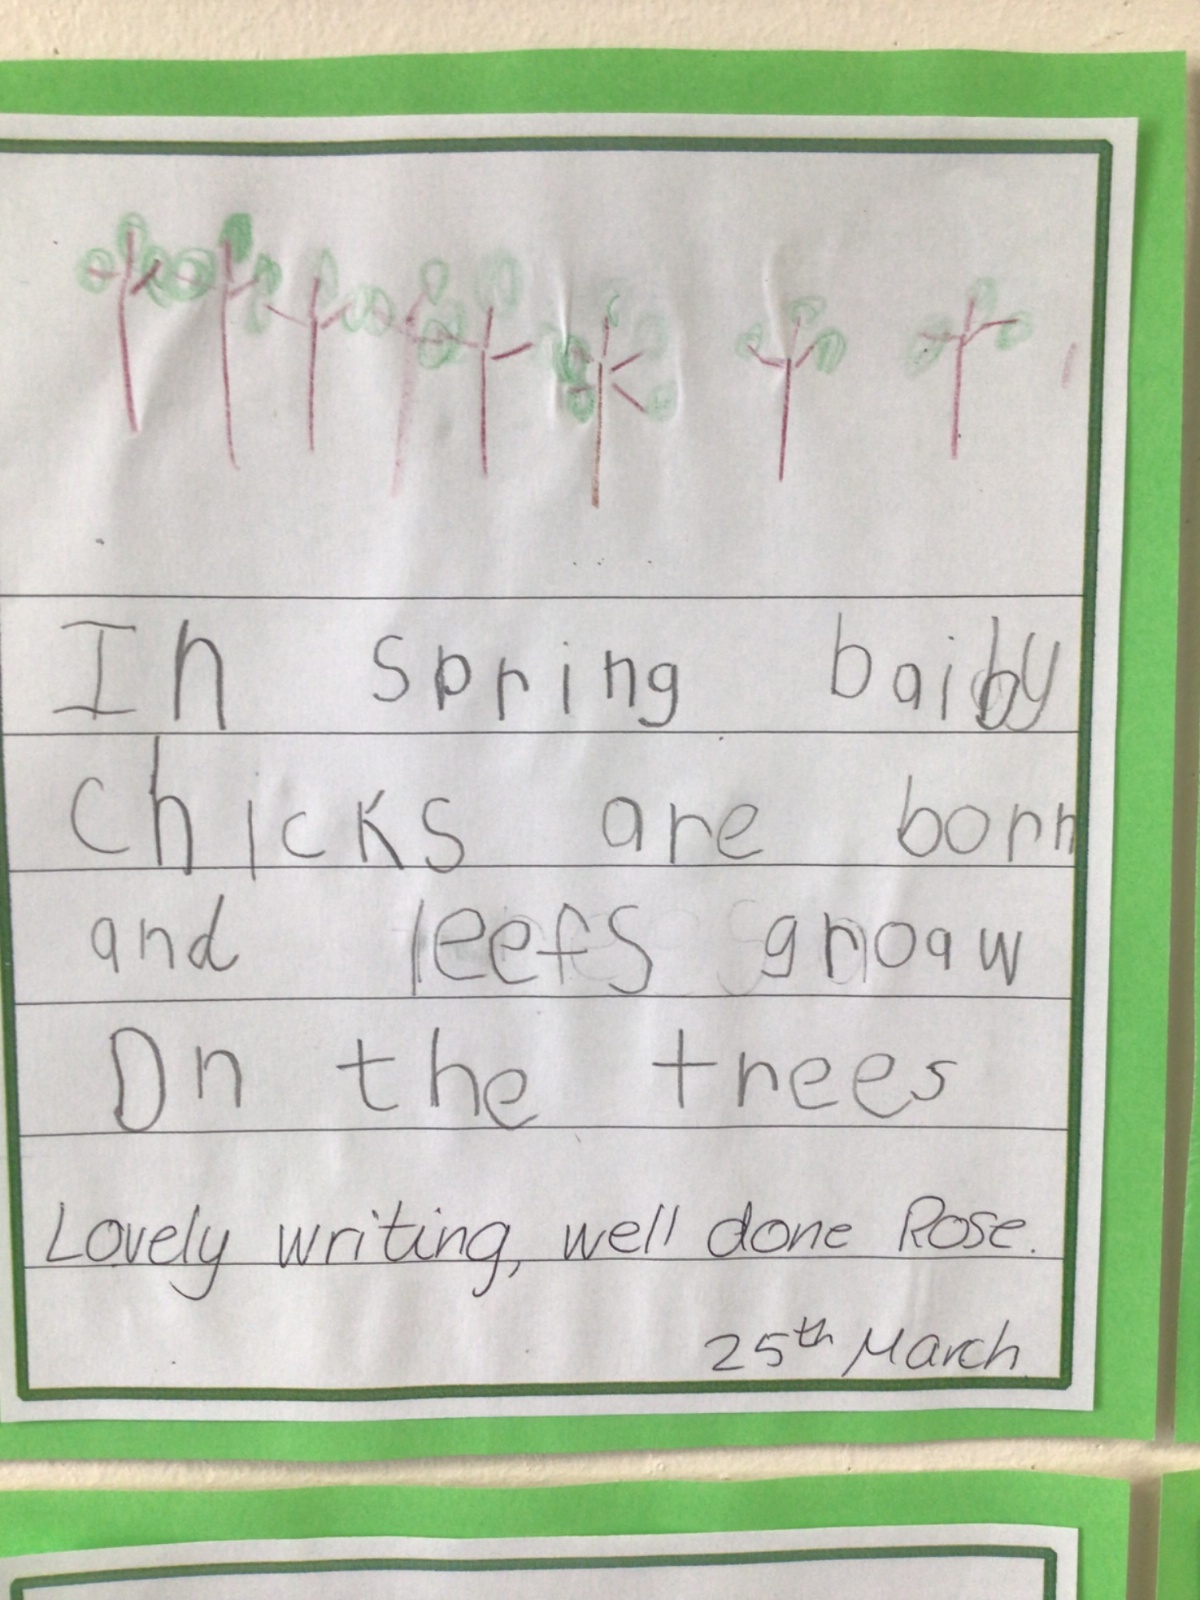 In spring baiby
chicks are born
and leefs groaw
On the trees
Lovely writing, well done Rose.
25th March